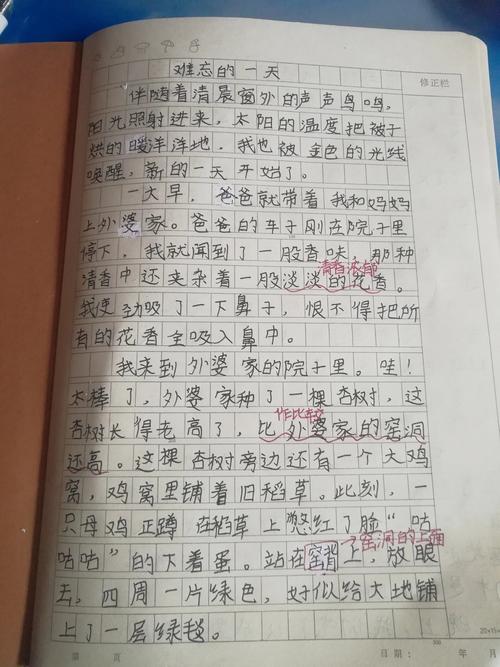 难忘的一天
修正栏
伴随着清晨窗外的声声鸟鸣，
阳光照射进来，太阳的温度把被子
烘的暖洋洋地，我也被金色的光线
唤醒，新的一天开始了。
一大早，爸爸就带着我和妈妈
上外婆家。爸爸的车子刚在院子里
停下，我就闻到了一股香味，那种
清香浓郁
清香中还夹杂着一股淡淡的花香。
我使劲吸了一下鼻子，恨不得把所
有的花香全吸入鼻中。
我来到外婆家的院子里。哇！
太棒了，外婆家种了一棵杏树，这
作比较
杏树长得老高了，比外婆家的窑洞
还高。这棵杏树旁边还有一个大鸡
窝，鸡窝里铺着旧稻草。此刻，一
只母鸡正蹲在稻草上憋红了脸“咕
窑洞的上面
咕咕”的下着蛋。站在窑背上，放眼
去，四周一片绿色，好似给大地铺
上了一层绿毯。
第 页
300
日期： 年 月